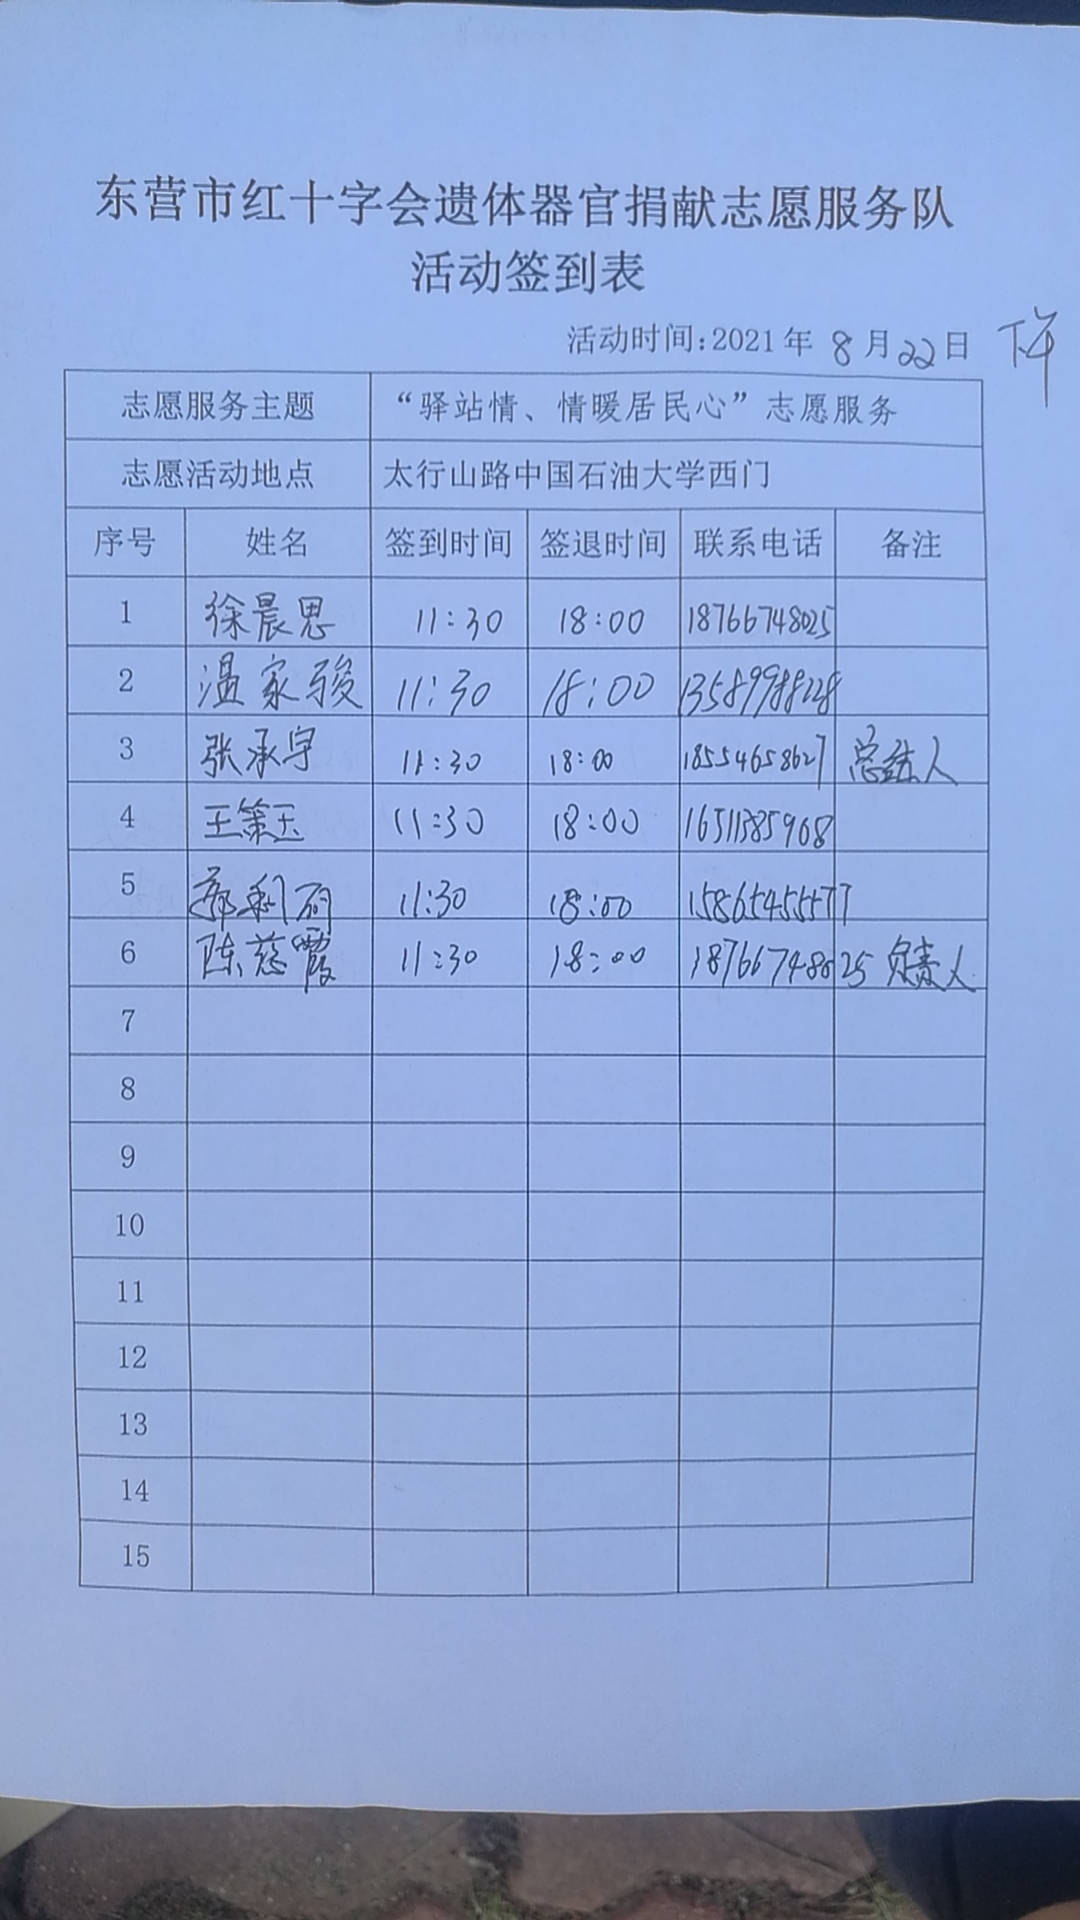 东营市红十字会遗体器官捐献志愿服务队
活动签到表
活动时间:2021年 8月22日 下午
志愿服务主题 “驿站情、情暖居民心”志愿服务
志愿活动地点 太行山路中国石油大学西门
序号 姓名 签到时间 签退时间 联系电话 备注
1 徐晨思 11:30 18:00 18766748025
2 温家骏 11:30 18:00 13589988228
3 张承宇 11:30 18:00 18554658627 总结人
4 王策玉 11:30 18:00 16511385968
5 11:30 18:00 15865455577
6 陈慈霞 11:30 18:00 18766748025 负责人
7
8
9
10
11
12
13
14
15